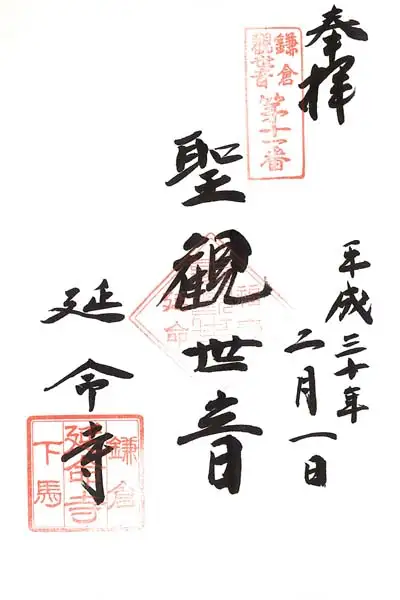 奉拝
鎌倉
觀世音
第十一番
平成三十年
二月一日
聖観世音
延命寺
鎌倉
延命寺
下馬